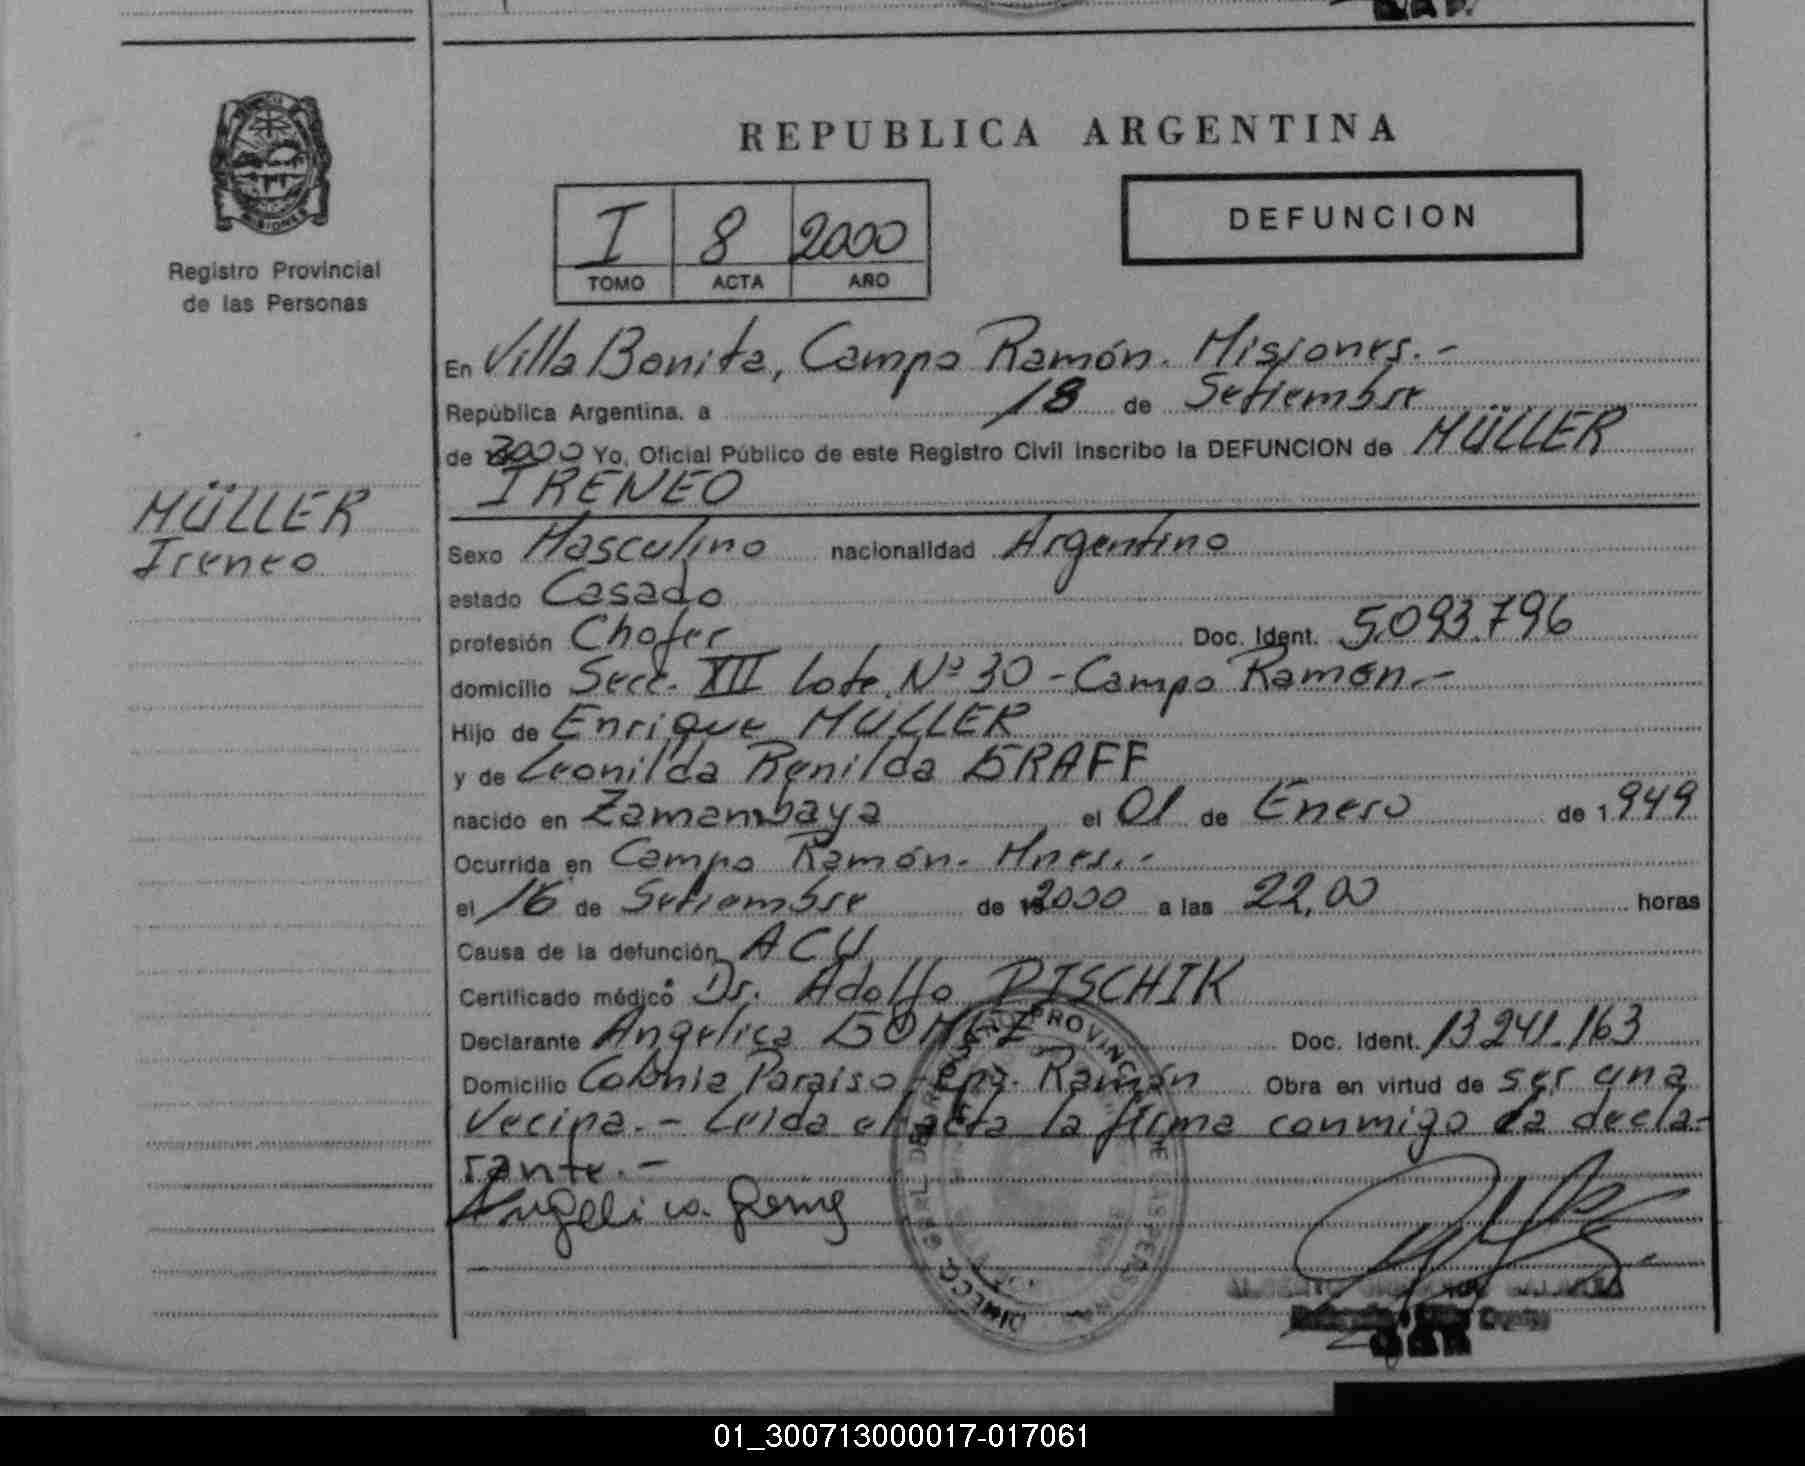 REPUBLICA ARGENTINA
DEFUNCION
I 8 2000
TOMO ACTA AÑO
MISIONES
Registro Provincial
de las Personas
MÜLLER
Ireneo
En Villa Bonita, Campo Ramón. Misiones.-
República Argentina, a 18 de Setiembre
de 2000 Yo, Oficial Público de este Registro Civil inscribo la DEFUNCION de MÜLLER
IRENEO
Sexo Masculino nacionalidad Argentino
estado Casado
profesión Chofer Doc. Ident. 5.093.796
domicilio Secc. XII Lote Nº 30 - Campo Ramón.-
Hijo de Enrique MÜLLER
y de Leonilda Renilda GRAFF
nacido en Zamambaya el 01 de Enero de 1.949
Ocurrida en Campo Ramón. Mnes.-
el 16 de Setiembre de 2000 a las 22,00 horas
Causa de la defunción ACV
Certificado médico Dr. Adolfo PISCHIK
Declarante Angélica GOMEZ Doc. Ident. 13.241.163
Domicilio Colonia Paraiso - Cpo. Ramón Obra en virtud de ser una
Vecina.- Leida el acta la firma conmigo la decla-
rante.-
Angelica Gomez
01_300713000017-017061